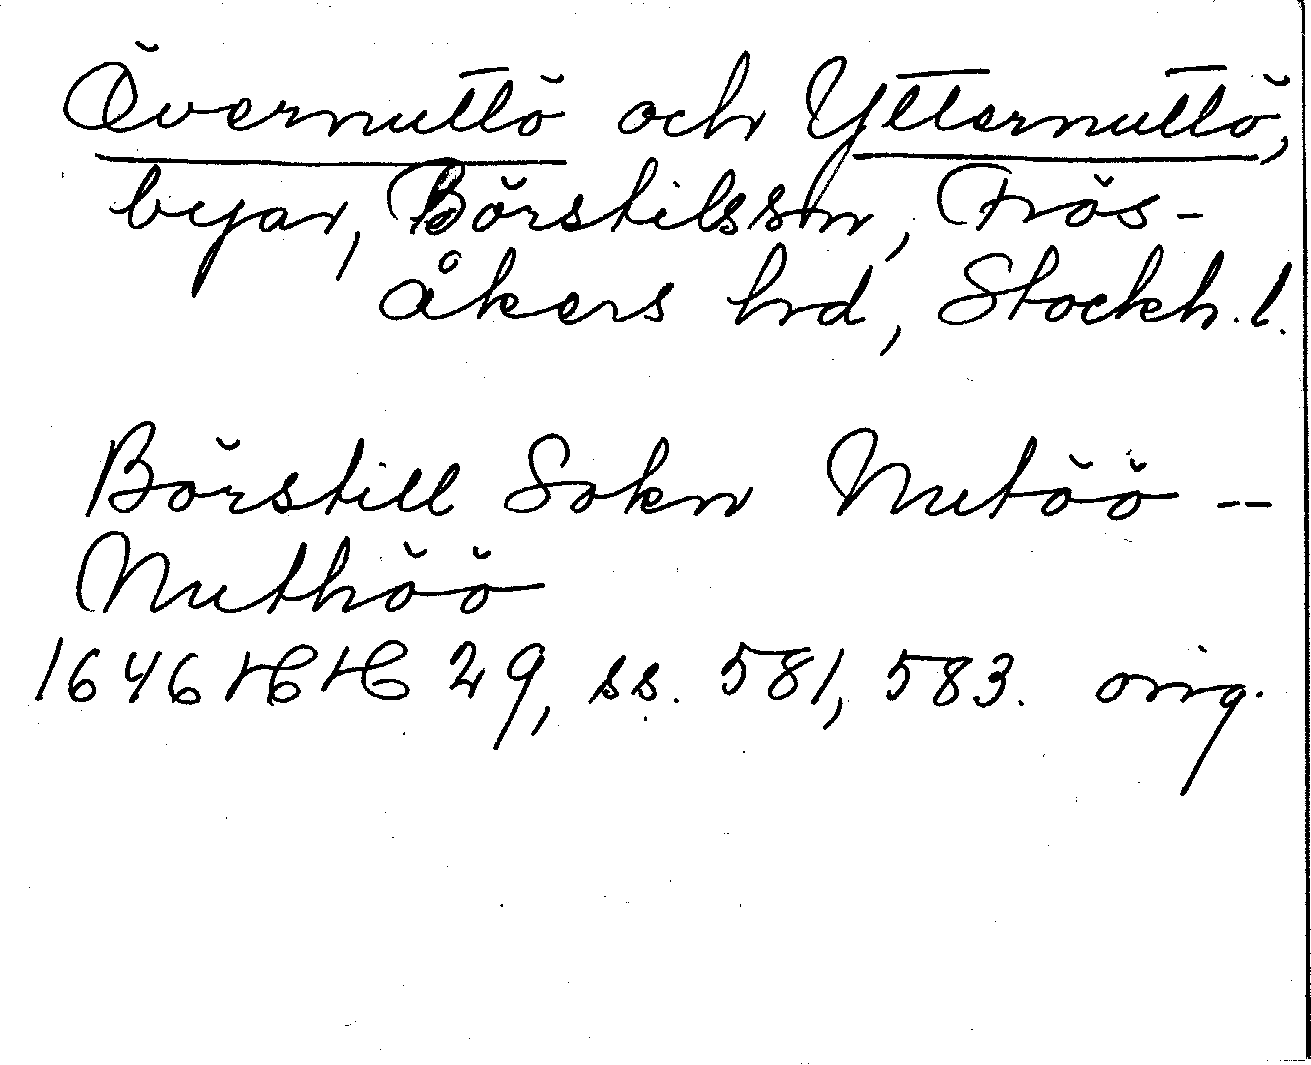 Övernuttö och Ytternuttö,
byar, Börstils sn, Frös-
åkers hrd, Stockh. l.
Börstill Sokn Nutöö --
Nuthöö
1646 HH 29, ss. 581, 583. orig.